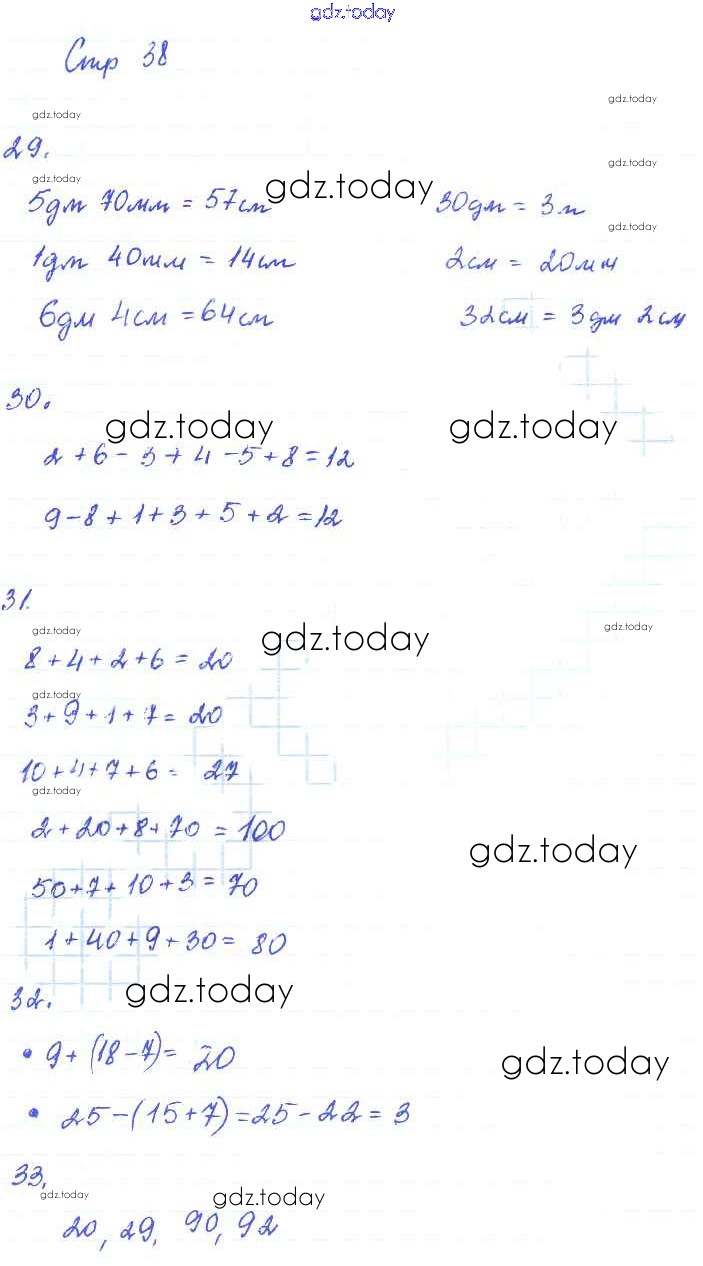 gdz.today
Стр 38
gdz.today
gdz.today
29.
gdz.today
gdz.today
gdz.today
5дм 70мм = 57см 30дм = 3м
gdz.today
1дм 40мм = 14см 2см = 20мм
6дм 4см = 64см 32см = 3дм 2см
30.
gdz.today gdz.today
2 + 6 - 5 + 4 - 5 + 8 = 12
9 - 8 + 1 + 3 + 5 + 2 = 12
31.
gdz.today gdz.today gdz.today
8 + 4 + 2 + 6 = 20
gdz.today
3 + 9 + 1 + 7 = 20
10 + 4 + 7 + 6 = 27
gdz.today
2 + 20 + 8 + 70 = 100
gdz.today
50 + 7 + 10 + 3 = 70
1 + 40 + 9 + 30 = 80
32. gdz.today
• 9 + (18 - 7) = 20
gdz.today
• 25 - (15 + 7) = 25 - 22 = 3
33.
gdz.today gdz.today
20, 29, 90, 92